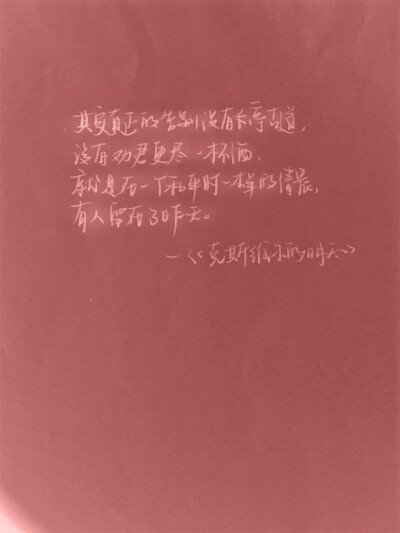 其实真正的告别没有长亭古道，
没有劝君更尽一杯酒，
就是在一个和平时一样的清晨，
有人留在了昨天。
—《克斯维尔的明天》